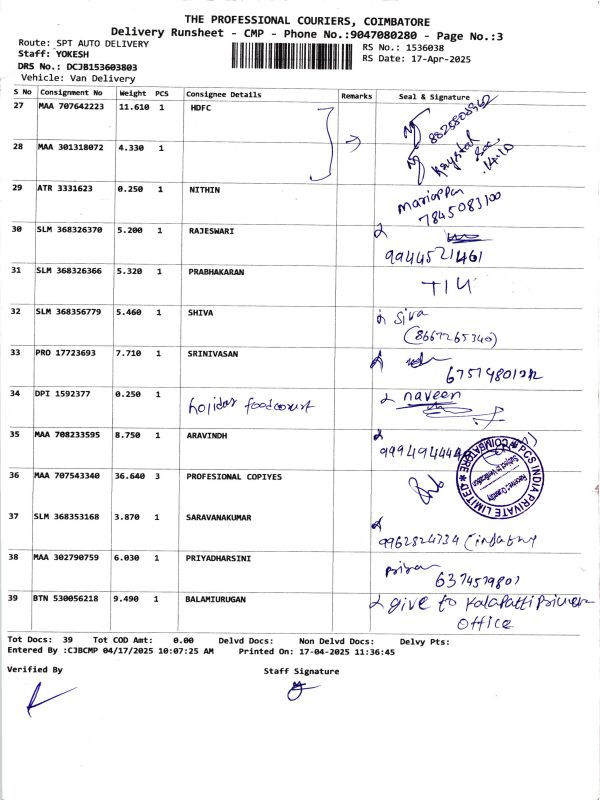 THE PROFESSIONAL COURIERS, COIMBATORE
Delivery Runsheet - CMP - Phone No.:9047080280 - Page No.:3
Route: SPT AUTO DELIVERY
Staff: YOKESH
DRS No.: DCJB153603803
Vehicle: Van Delivery
RS No.: 1536038
RS Date: 17-Apr-2025
S No Consignment No Weight PCS Consignee Details Remarks Seal & Signature
27 MAA 707642223 11.610 1 HDFC
28 MAA 301318072 4.330 1
Krystal
14.10
29 ATR 3331623 0.250 1 NITHIN
Mariappan
7845083100
30 SLM 368326370 5.200 1 RAJESWARI
9944521461
31 SLM 368326366 5.320 1 PRABHAKARAN
32 SLM 368356779 5.460 1 SHIVA
Siva
(8667265340)
33 PRO 17723693 7.710 1 SRINIVASAN
34 DPI 1592377 0.250 1 holiday foodcourt
naveen
35 MAA 708233595 8.750 1 ARAVINDH
36 MAA 707543340 36.640 3 PROFESIONAL COPIYES
PCS INDIA PRIVATE LIMITED
COIMBATORE
37 SLM 368353168 3.870 1 SARAVANAKUMAR
9962824734
38 MAA 302790759 6.030 1 PRIYADHARSINI
6374579801
39 BTN 530056218 9.490 1 BALAMIURUGAN
give to Kalapatti
office
Tot Docs: 39 Tot COD Amt: 0.00 Delvd Docs: Non Delvd Docs: Delvy Pts:
Entered By :CJBCMP 04/17/2025 10:07:25 AM Printed On: 17-04-2025 11:36:45
Verified By
Staff Signature